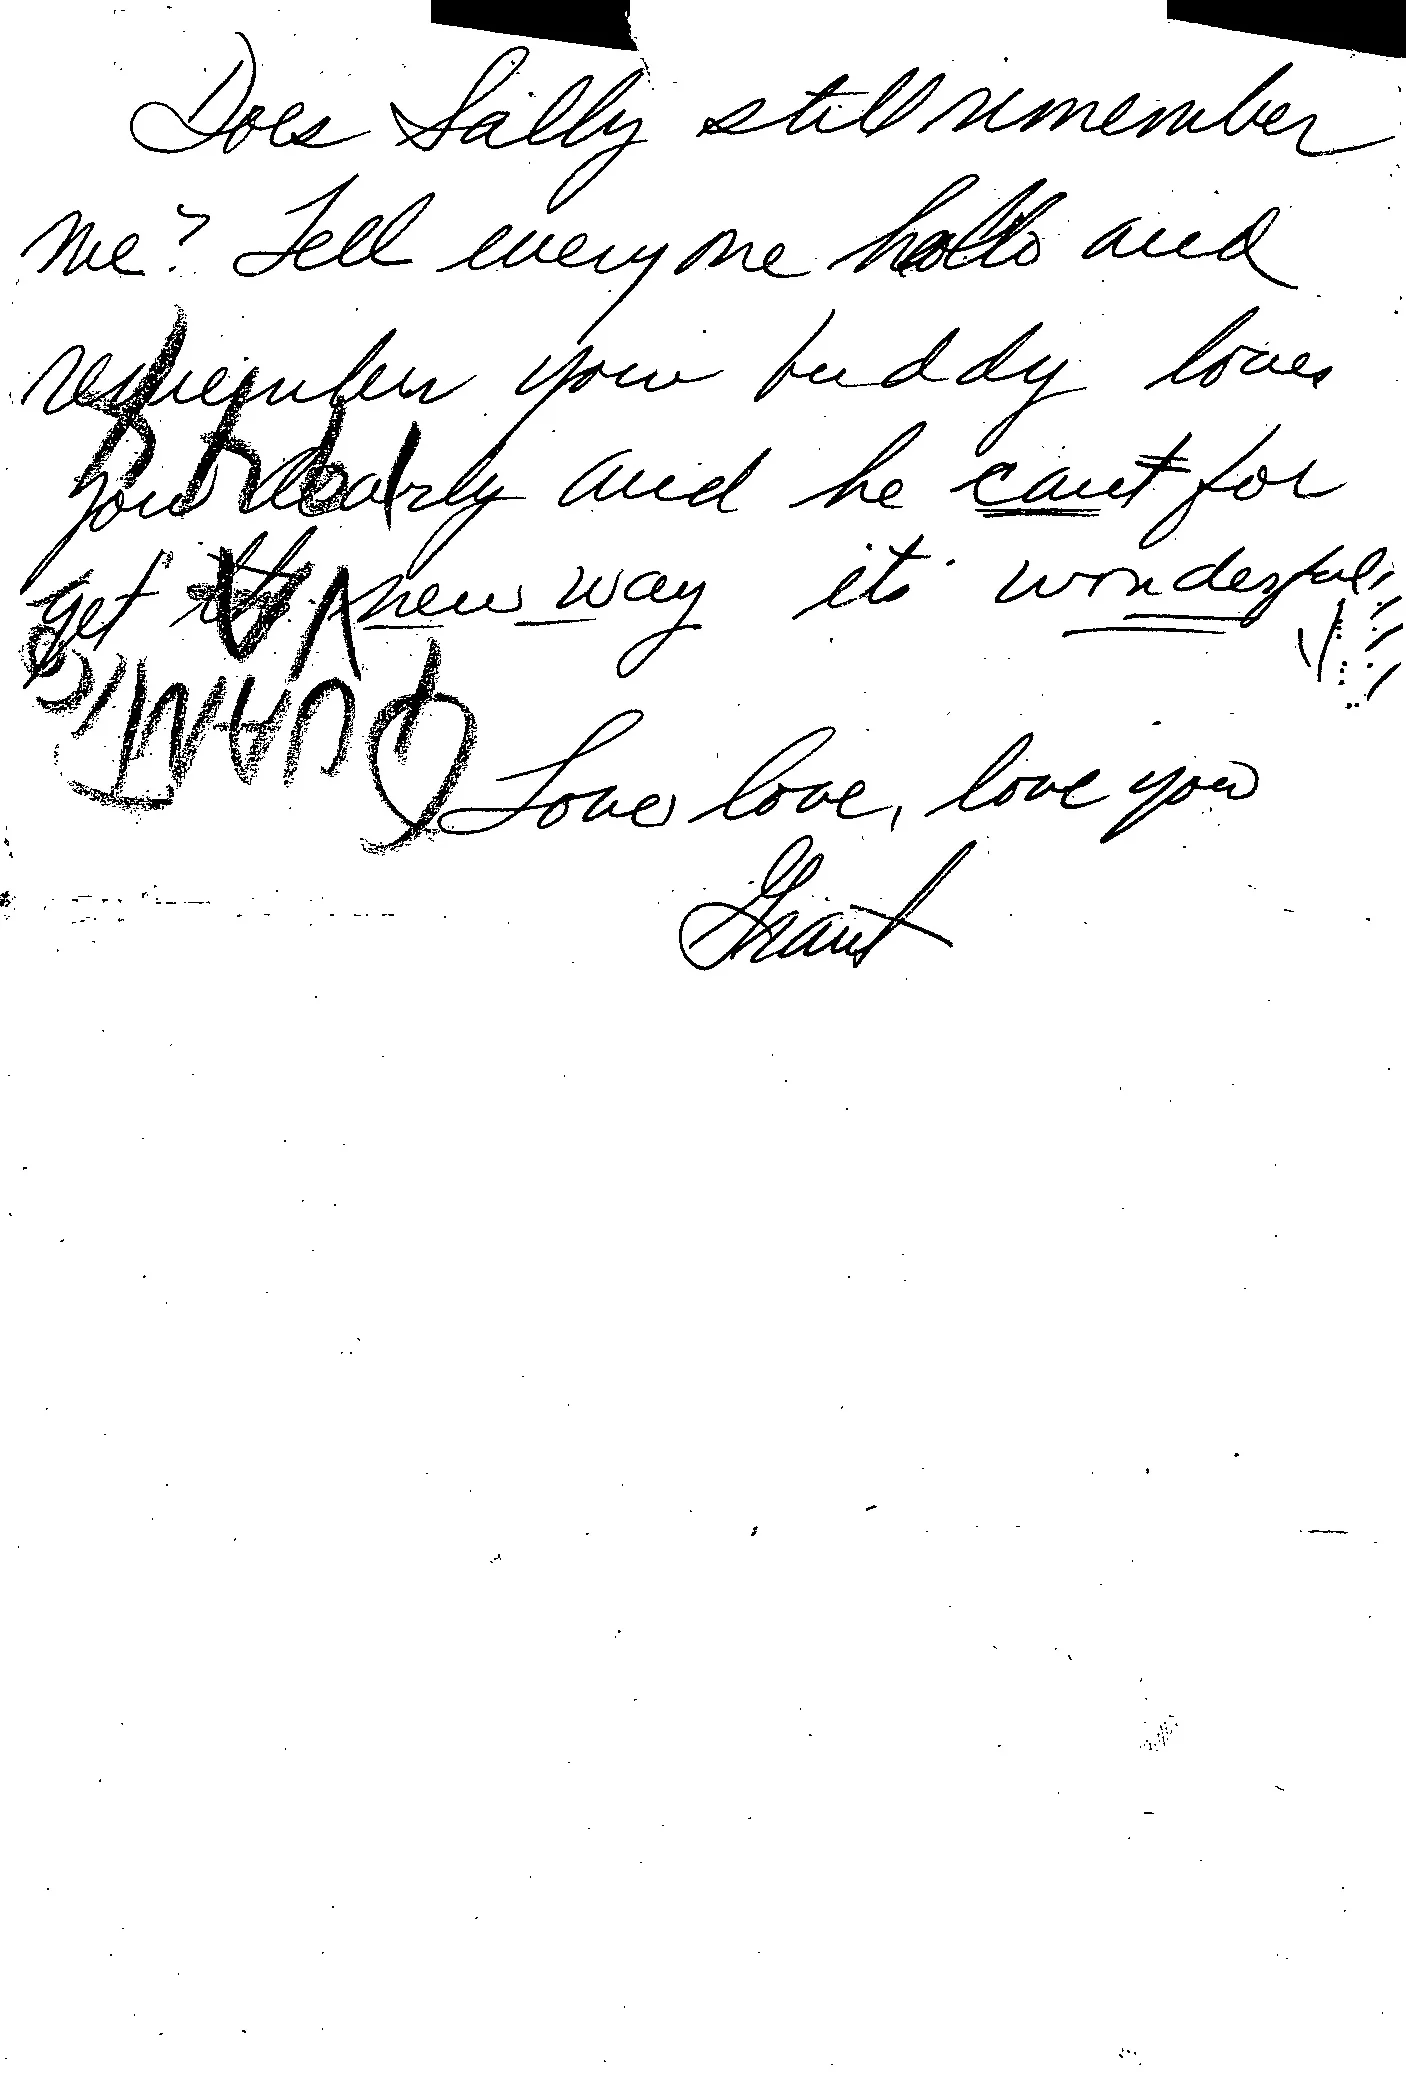 Does Sally still remember
me? Tell everyone hello and
remember your buddy loves
you dearly and he cant for
get the new way its wonderful!!
Love love, love you
Grant
QUANTICO
VA